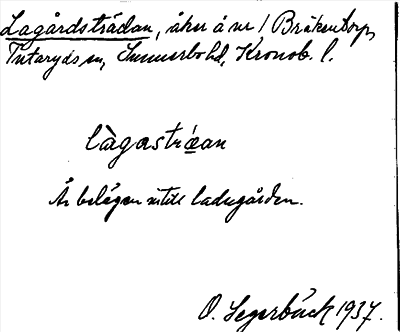 Lagårdsträdan, åker å nr 1 Bråkentorp,
Tutaryds sn, Sunnerbo hd, Kronob. l.
làgastrǽan
Är belägen intill ladugården.
O. Segerbäck 1937.